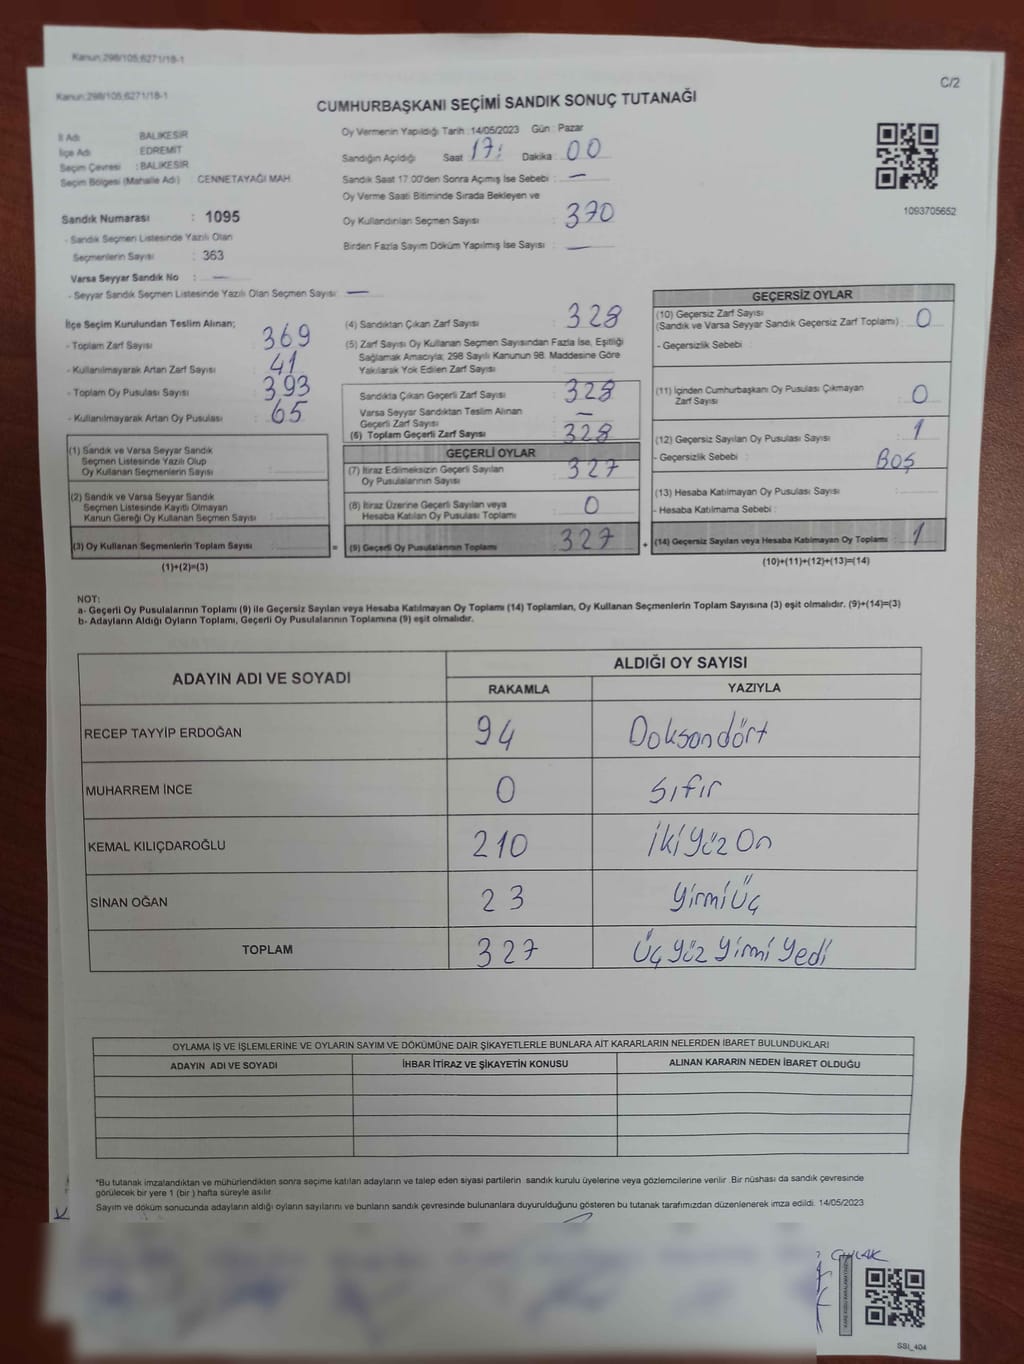 Kanun:298/105;6271/18-1
Kanun:298/105;6271/18-1
C/2
CUMHURBAŞKANI SEÇİMİ SANDIK SONUÇ TUTANAĞI
İl Adı BALIKESİR
İlçe Adı EDREMİT
Seçim Çevresi : BALIKESİR
Seçim Bölgesi (Mahalle Adı) : CENNETAYAĞI MAH.
Sandık Numarası : 1095
- Sandık Seçmen Listesinde Yazılı Olan
Seçmenlerin Sayısı : 363
Varsa Seyyar Sandık No : —
- Seyyar Sandık Seçmen Listesinde Yazılı Olan Seçmen Sayısı : —
Oy Vermenin Yapıldığı Tarih : 14/05/2023 Gün : Pazar
Sandığın Açıldığı Saat 17: Dakika : 00
Sandık Saat 17.00'den Sonra Açımış İse Sebebi : —
Oy Verme Saati Bitiminde Sırada Bekleyen ve
Oy Kullandırılan Seçmen Sayısı : 370
Birden Fazla Sayım Döküm Yapılmış İse Sayısı : —
1093705652
İlçe Seçim Kurulundan Teslim Alınan;
- Toplam Zarf Sayısı : 369
- Kullanılmayarak Artan Zarf Sayısı : 41
- Toplam Oy Pusulası Sayısı : 393
- Kullanılmayarak Artan Oy Pusulası : 65
(1) Sandık ve Varsa Seyyar Sandık
Seçmen Listesinde Yazılı Olup
Oy Kullanan Seçmenlerin Sayısı :
(2) Sandık ve Varsa Seyyar Sandık
Seçmen Listesinde Kayıtlı Olmayan
Kanun Gereği Oy Kullanan Seçmen Sayısı :
(3) Oy Kullanan Seçmenlerin Toplam Sayısı :
(1)+(2)=(3)
(4) Sandıktan Çıkan Zarf Sayısı : 328
(5) Zarf Sayısı Oy Kullanan Seçmen Sayısından Fazla İse, Eşitliği
Sağlamak Amacıyla; 298 Sayılı Kanunun 98. Maddesine Göre
Yakılarak Yok Edilen Zarf Sayısı :
Sandıkta Çıkan Geçerli Zarf Sayısı : 328
Varsa Seyyar Sandıktan Teslim Alınan
Geçerli Zarf Sayısı : —
(6) Toplam Geçerli Zarf Sayısı : 328
GEÇERLİ OYLAR
(7) İtiraz Edilmeksizin Geçerli Sayılan
Oy Pusulalarının Sayısı : 327
(8) İtiraz Üzerine Geçerli Sayılan veya
Hesaba Katılan Oy Pusulası Toplamı : 0
= (9) Geçerli Oy Pusulalarının Toplamı : 327
GEÇERSİZ OYLAR
(10) Geçersiz Zarf Sayısı
(Sandık ve Varsa Seyyar Sandık Geçersiz Zarf Toplamı) : 0
- Geçersizlik Sebebi :
(11) İçinden Cumhurbaşkanı Oy Pusulası Çıkmayan
Zarf Sayısı : 0
(12) Geçersiz Sayılan Oy Pusulası Sayısı : 1
- Geçersizlik Sebebi : BOŞ
(13) Hesaba Katılmayan Oy Pusulası Sayısı :
- Hesaba Katılmama Sebebi :
+ (14) Geçersiz Sayılan veya Hesaba Katılmayan Oy Toplamı : 1
(10)+(11)+(12)+(13)=(14)
NOT:
a- Geçerli Oy Pusulalarının Toplamı (9) ile Geçersiz Sayılan veya Hesaba Katılmayan Oy Toplamı (14) Toplamları, Oy Kullanan Seçmenlerin Toplam Sayısına (3) eşit olmalıdır. (9)+(14)=(3)
b- Adayların Aldığı Oyların Toplamı, Geçerli Oy Pusulalarının Toplamına (9) eşit olmalıdır.
ADAYIN ADI VE SOYADI ALDIĞI OY SAYISI
RAKAMLA YAZIYLA
RECEP TAYYİP ERDOĞAN 94 Doksandört
MUHARREM İNCE 0 Sıfır
KEMAL KILIÇDAROĞLU 210 İki Yüz On
SİNAN OĞAN 23 Yirmi Üç
TOPLAM 327 Üç Yüz Yirmi Yedi
OYLAMA İŞ VE İŞLEMLERİNE VE OYLARIN SAYIM VE DÖKÜMÜNE DAİR ŞİKAYETLERLE BUNLARA AİT KARARLARIN NELERDEN İBARET BULUNDUKLARI
ADAYIN ADI VE SOYADI İHBAR İTİRAZ VE ŞİKAYETİN KONUSU ALINAN KARARIN NEDEN İBARET OLDUĞU
*Bu tutanak imzalandıktan ve mühürlendikten sonra seçime katılan adayların ve talep eden siyasi partilerin sandık kurulu üyelerine veya gözlemcilerine verilir. Bir nüshası da sandık çevresinde
görülecek bir yere 1 (bir) hafta süreyle asılır.
Sayım ve döküm sonucunda adayların aldığı oyların sayılarını ve bunların sandık çevresinde bulunanlara duyurulduğunu gösteren bu tutanak tarafımızdan düzenlenerek imza edildi. 14/05/2023
SSI_404